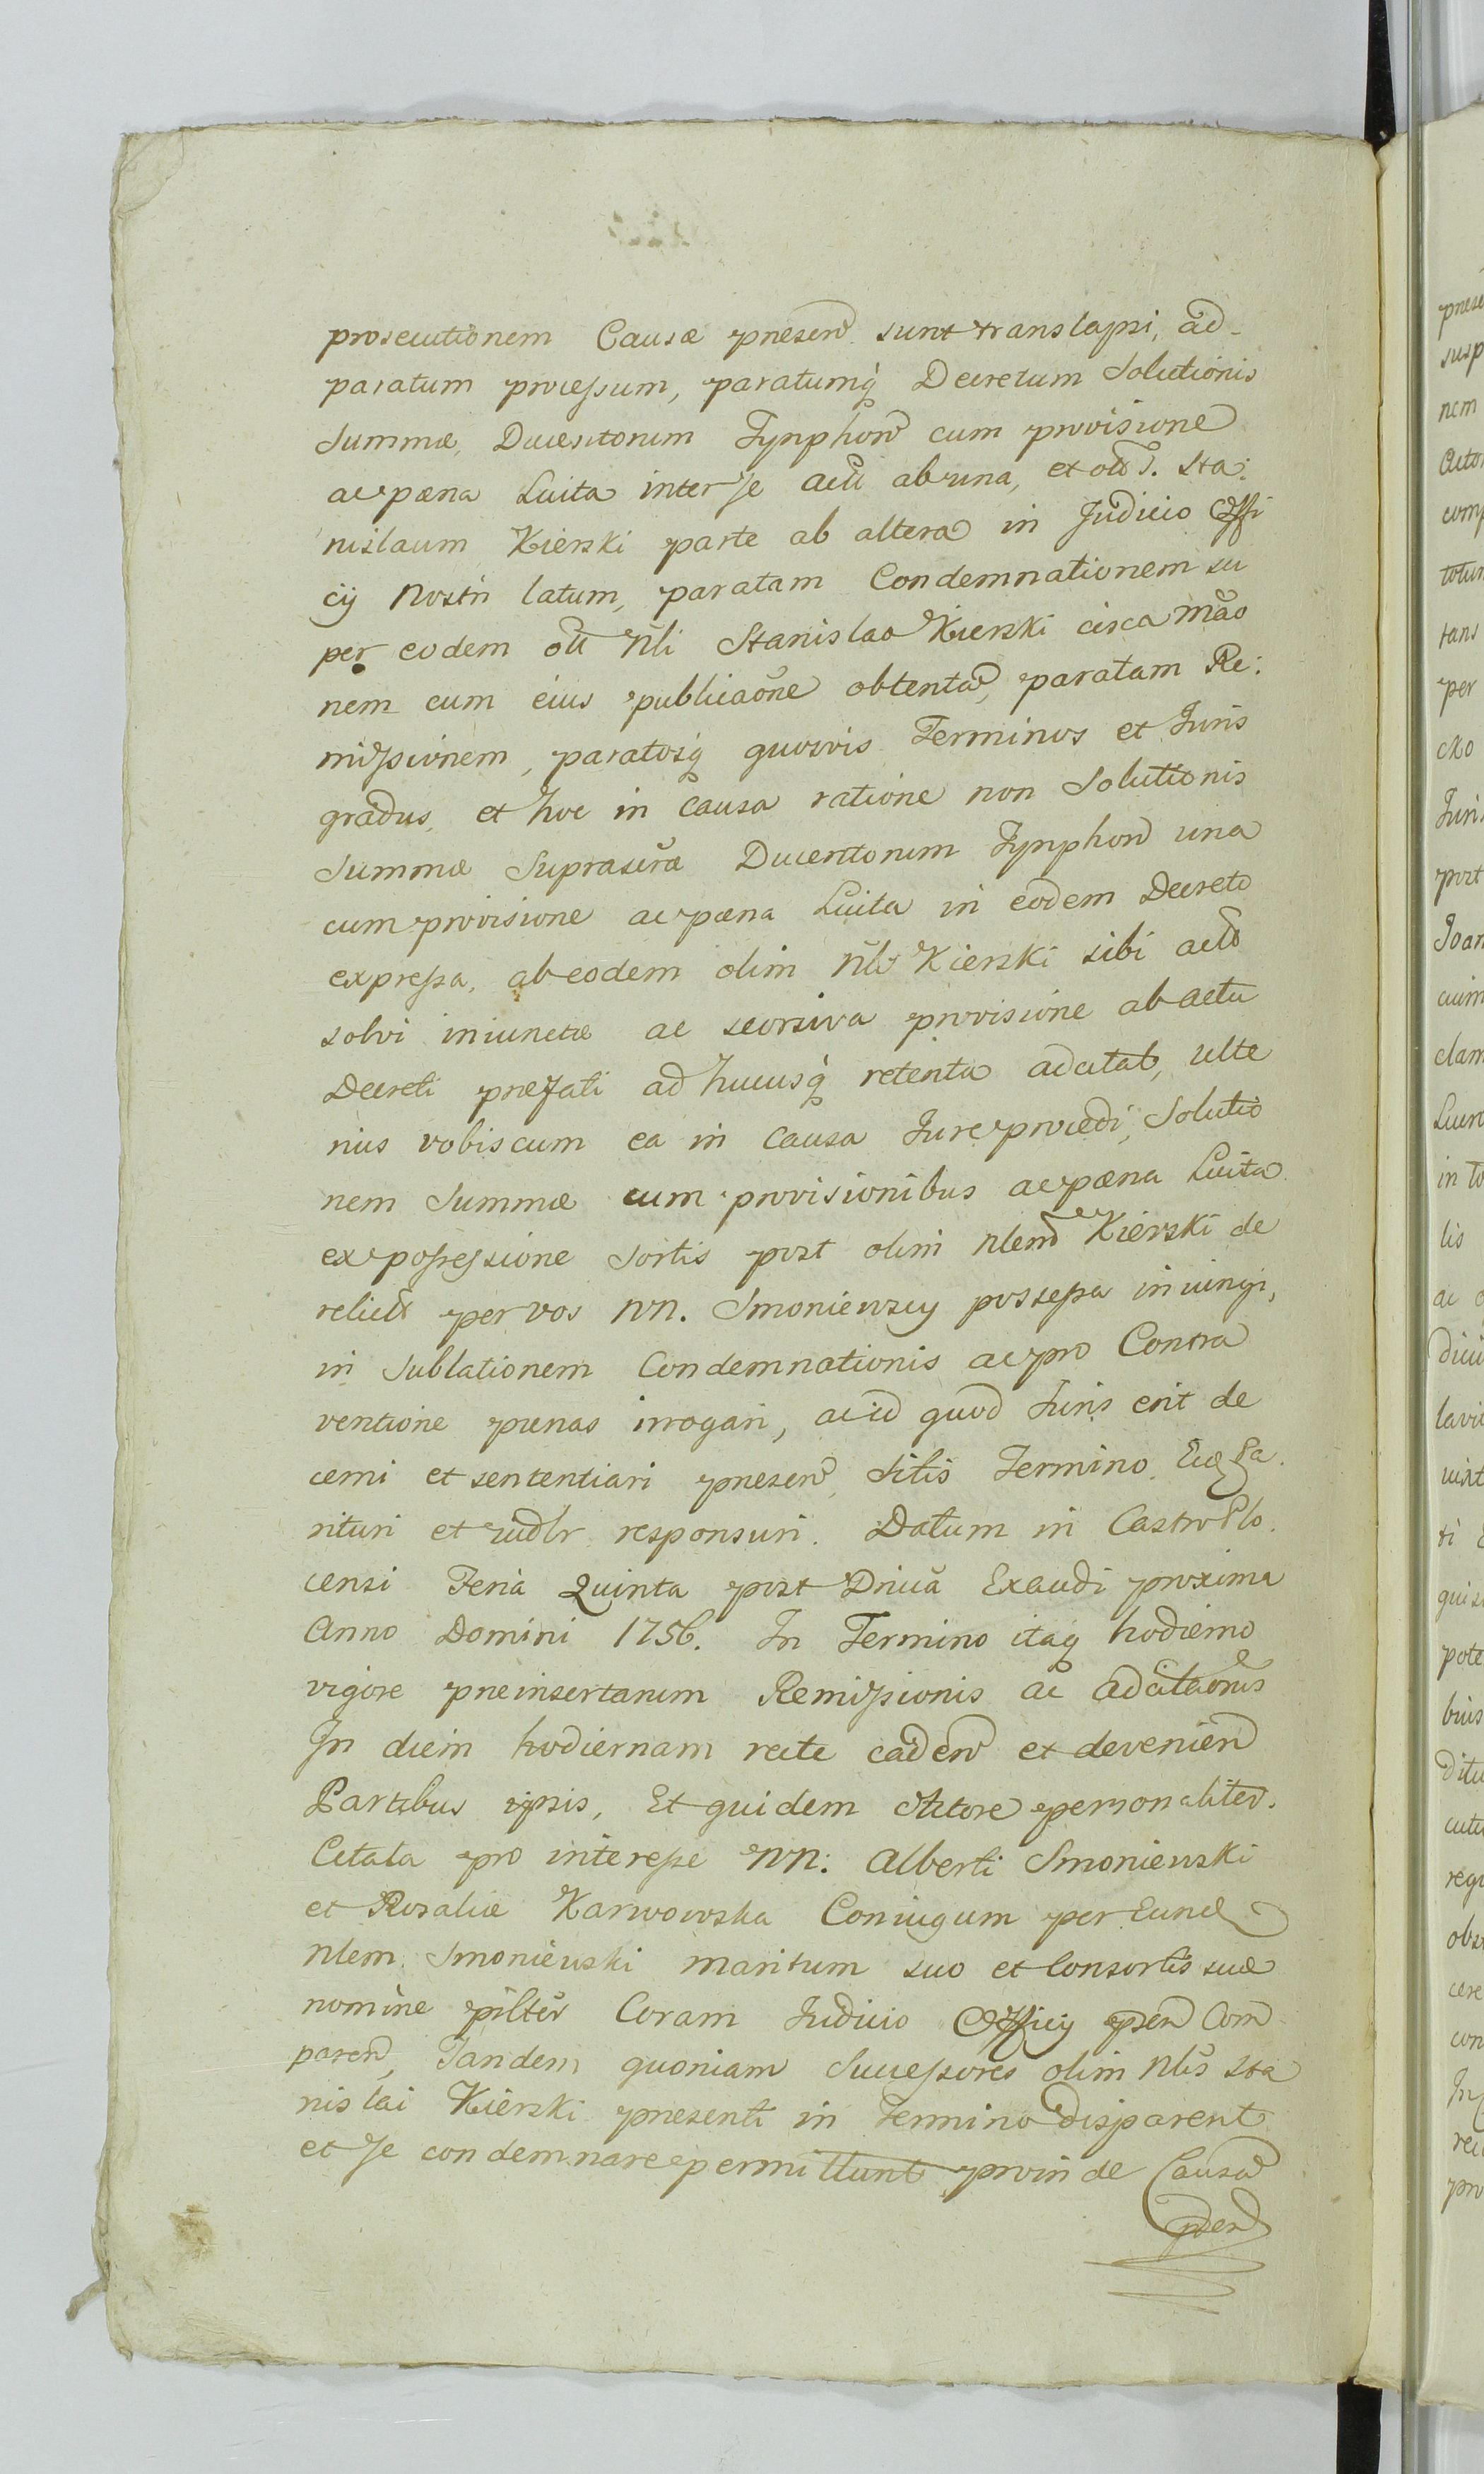 prosecutionem Causæ præsen sunt translapsi, ad
paratum processum, paratumq Decretum Solutionis
Summæ Ducentorum Tynphon cum provisione
ac pæna Luita inter se act ab una, et olt S. Sta:
nislaum Kierski parte ab altera in Judicio Offi
cij Nostri latum, paratam Condemnationem su
per eodem olt Nli Stanislao Kierski circa mão
nem cum eius publicaõne obtenta, paratam Re:
missionem, paratosq quosvis Terminos et Juris
gradus, et hoc in causa ratione non Solutionis
Summæ Suprascræ Ducentorum Tynphon una
cum provisione ac pæna Luita in eodem Decreto
expressa, ab eodem olim Nli Kierski sibi acto
solvi iniunctæ ac seorsiva provisione ab actu
Decreti præfati ad hucusq retenta adcitat, ulte
rius vobiscum ea in causa Jure procedi, Solutio
nem Summæ cum provisionibus ac pæna Luita
ex possessione Sortis post olim Nlem Kierski de
relict per vos NN. Smoniewscy possessa iniungi,
in Sublationem Condemnationis ac pro Contra
ventione pænas irrogari, ac id quod Juris erit de
cerni et sententiari præsen Sitis Termino. Eidq Pa
rituri et iudlr responsuri. Datum in Castro Plo
censi Feria Quinta post Dnicã Exaudi proxima
Anno Domini 1756. In Termino itaq hodierno
vigore præinsertarum Remissionis ac adcitaõnis
In diem hodiernam recte caden et devenien
Partibus ipsis, Et quidem Actore personaliter.
Citata pro interesse NN: Alberti Smoniewski
et Rosaliæ Karwowska Coniugum per Eund
Nlem Smoniewski maritum suo et Consortis suæ
nomine pilter Coram Judicio Officij psen Com
paren, Tandem quoniam Successores olim Nlis Sta
nislai Kierski præsenti in Termino disparent
et se condemnare permittunt proinde Causa
psen